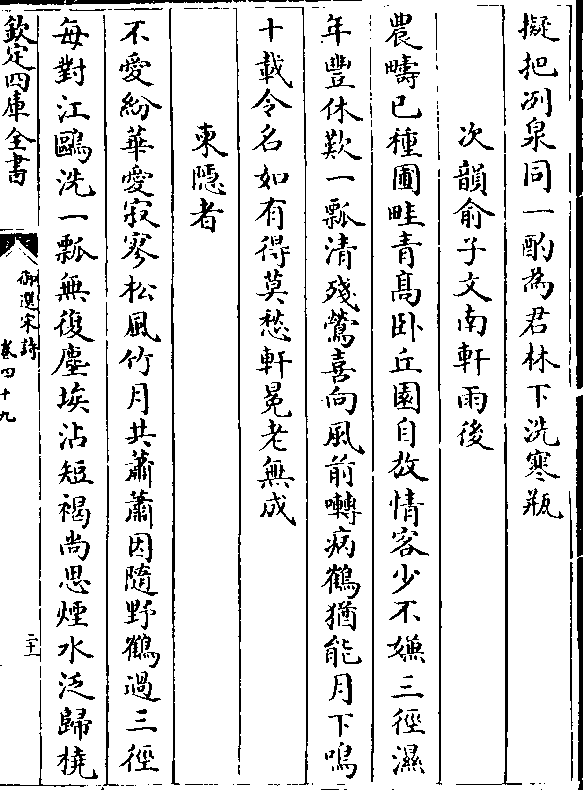 擬把冽泉同一酌為君林下洗寒瓶
次韻俞子文南軒雨後
農疇已種圃畦青髙卧丘園自放情客少不嫌三徑濕
年豐休歎一瓢清殘鶯喜向風前囀病鶴猶能月下鳴
十載令名如有得莫愁軒冕老無成
柬隠者
不愛紛華愛寂寥松風竹月共蕭蕭因隨野鶴過三徑
每對江鷗洗一瓢無復塵埃沾短褐尚思煙水泛歸橈
欽定四庫全書
御選宋詩
卷四十九
二十一